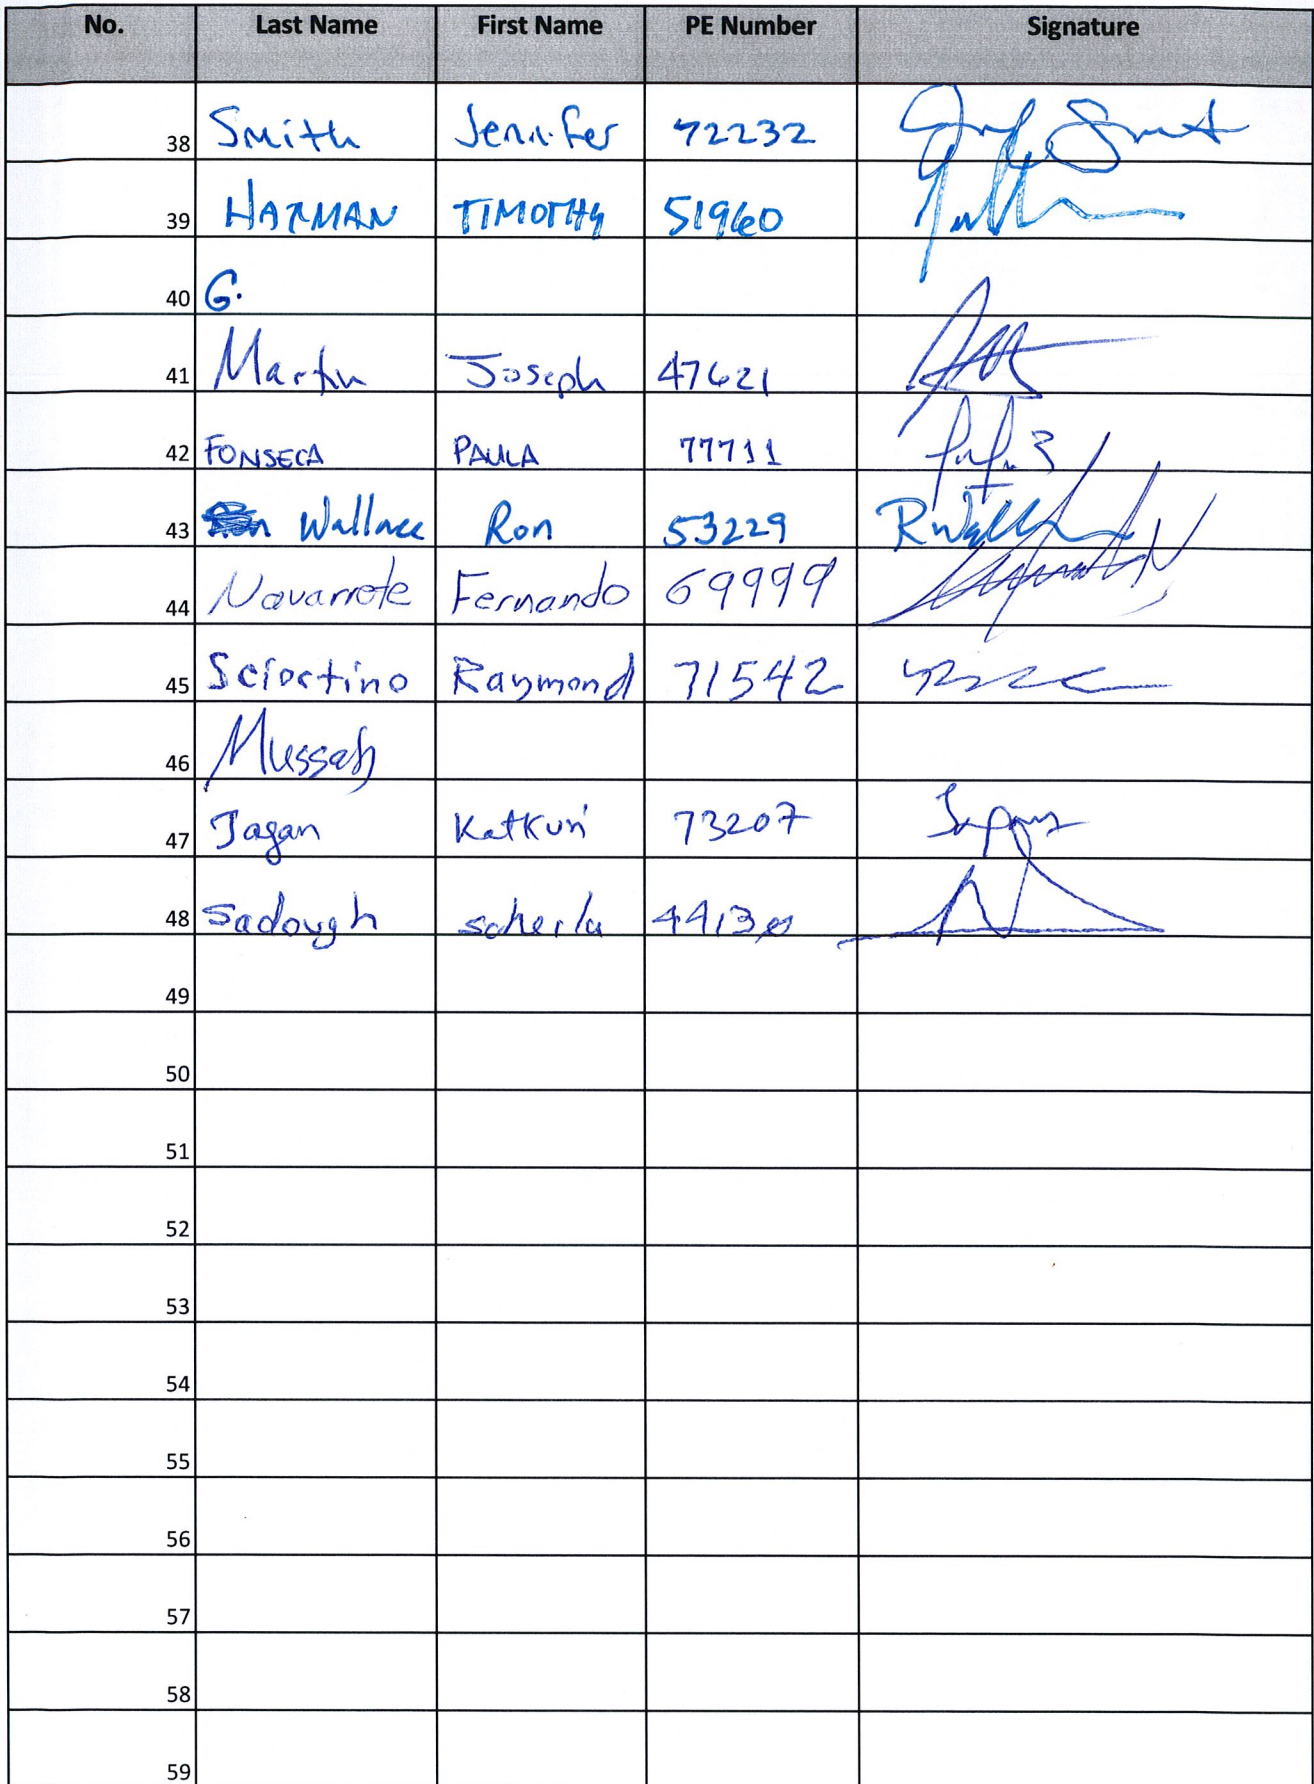 No. Last Name First Name PE Number Signature
38 Smith Jennifer 72232
39 HARMAN TIMOTHY 51960
40 G.
41 Martin Joseph 47621
42 FONSECA PAULA 77711
43 Wallace Ron 53229
44 Navarrete Fernando 69999
45 Sciortino Raymond 71542
46
47 Jagan Katkuri 73207
48 Sadough
49
50
51
52
53
54
55
56
57
58
59